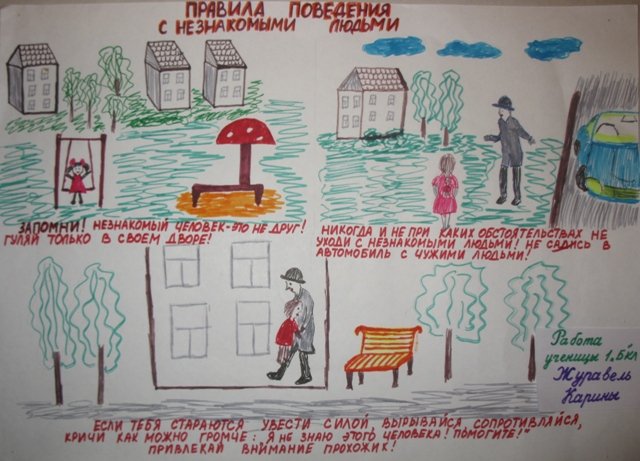 ПРАВИЛА ПОВЕДЕНИЯ
С НЕЗНАКОМЫМИ ЛЮДЬМИ
ЗАПОМНИ! НЕЗНАКОМЫЙ ЧЕЛОВЕК-ЭТО НЕ ДРУГ!
ГУЛЯЙ ТОЛЬКО В СВОЕМ ДВОРЕ!
НИКОГДА И НЕ ПРИ КАКИХ ОБСТОЯТЕЛЬСТВАХ НЕ
УХОДИ С НЕЗНАКОМЫМИ ЛЮДЬМИ! НЕ САДИСЬ В
АВТОМОБИЛЬ С ЧУЖИМИ ЛЮДЬМИ!
Работа
ученицы 1„Б"кл
Журавель
Карины
ЕСЛИ ТЕБЯ СТАРАЮТСЯ УВЕСТИ СИЛОЙ, ВЫРЫВАЙСЯ, СОПРОТИВЛЯЙСЯ,
КРИЧИ КАК МОЖНО ГРОМЧЕ: „Я НЕ ЗНАЮ ЭТОГО ЧЕЛОВЕКА! ПОМОГИТЕ!"
ПРИВЛЕКАЙ ВНИМАНИЕ ПРОХОЖИХ!